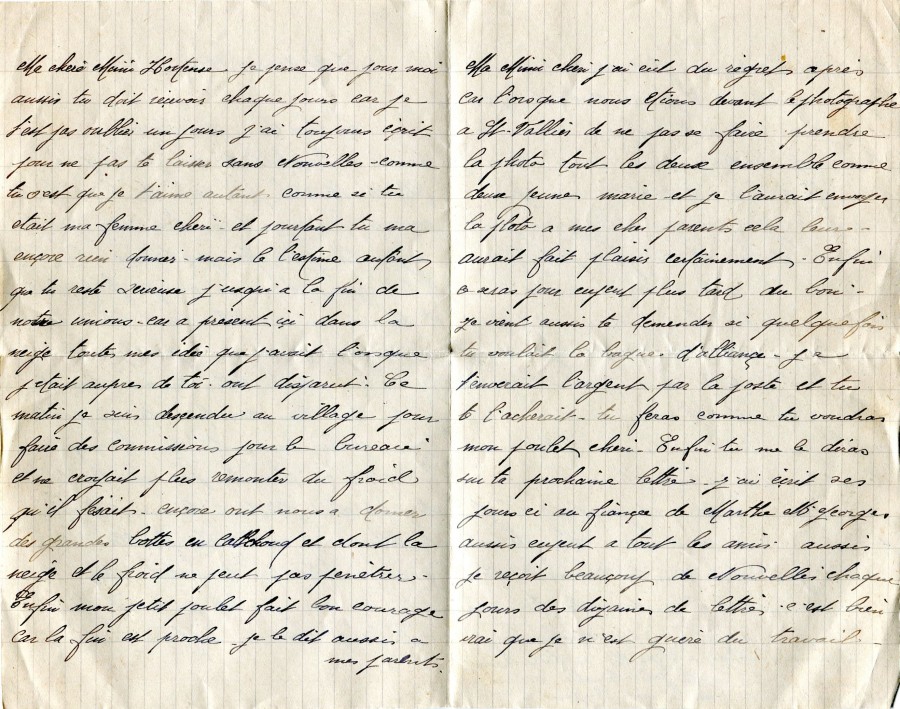 Ma cherè Mimi Hortense je pense que pour moi
aussi tu doit recevoir chaque jours car je
t'est pas oublier un jours j'ai toujours ècrit
pour ne pas te laisser sans Nouvelles - comme
tu s'est que je t'aime autant comme si tu
etait ma femme cheri - et pourtant tu ma
ençore rien donner - mais le l'estime autant
que tu reste serieuse jusqu'a la fin de
notre unions - car a present içi dans la
neige toutes mes idèe que j'avait l'orsque
j'etait aupres de toi - ont disparut - Ce
matin je suis descendu au village pour
faire des commissions pour le bureau
et ne croyait plus remonter du froid
qu'il fesait - ençore ont nous a donner
des grandes bottes en caoutchoud et dont la
neige et le froid ne peut pas penètrer -
Enfin mon petit poulet fait bon courage
car la fin est proche - je le dit aussi a
mes parents.
Ma Mimi cheri j'ai eut du règret après
car l'orsque nous etions devant le photographe
a St-Vallier de ne pas se faire prendre
la photo tout les deux ensemble comme
deux jeune marie - et je l'aurait envoyer
la photo a mes cher parents cela leurs -
aurait fait plaisir certainement - Enfin
ce seras pour enjent plus tard du boni -
Je vient aussi te demender si quelquefois
tu voulait la bague d'alliançe - je
t'enverait l'argent par la poste et tu
te l'acherait - tu feras comme tu voudras
mon poulet chèri - Enfin tu me le diras
sur ta prochaine lettre - j'ai ècrit ses
jours ci au fiançe de Marthe Mr Georges
aussi enjent a tout les amis aussi
je reçoit beauçoup de Nouvelles chaque
jours des dizaines de lettrè - c'est bien
vrai que je n'est guère du travail -